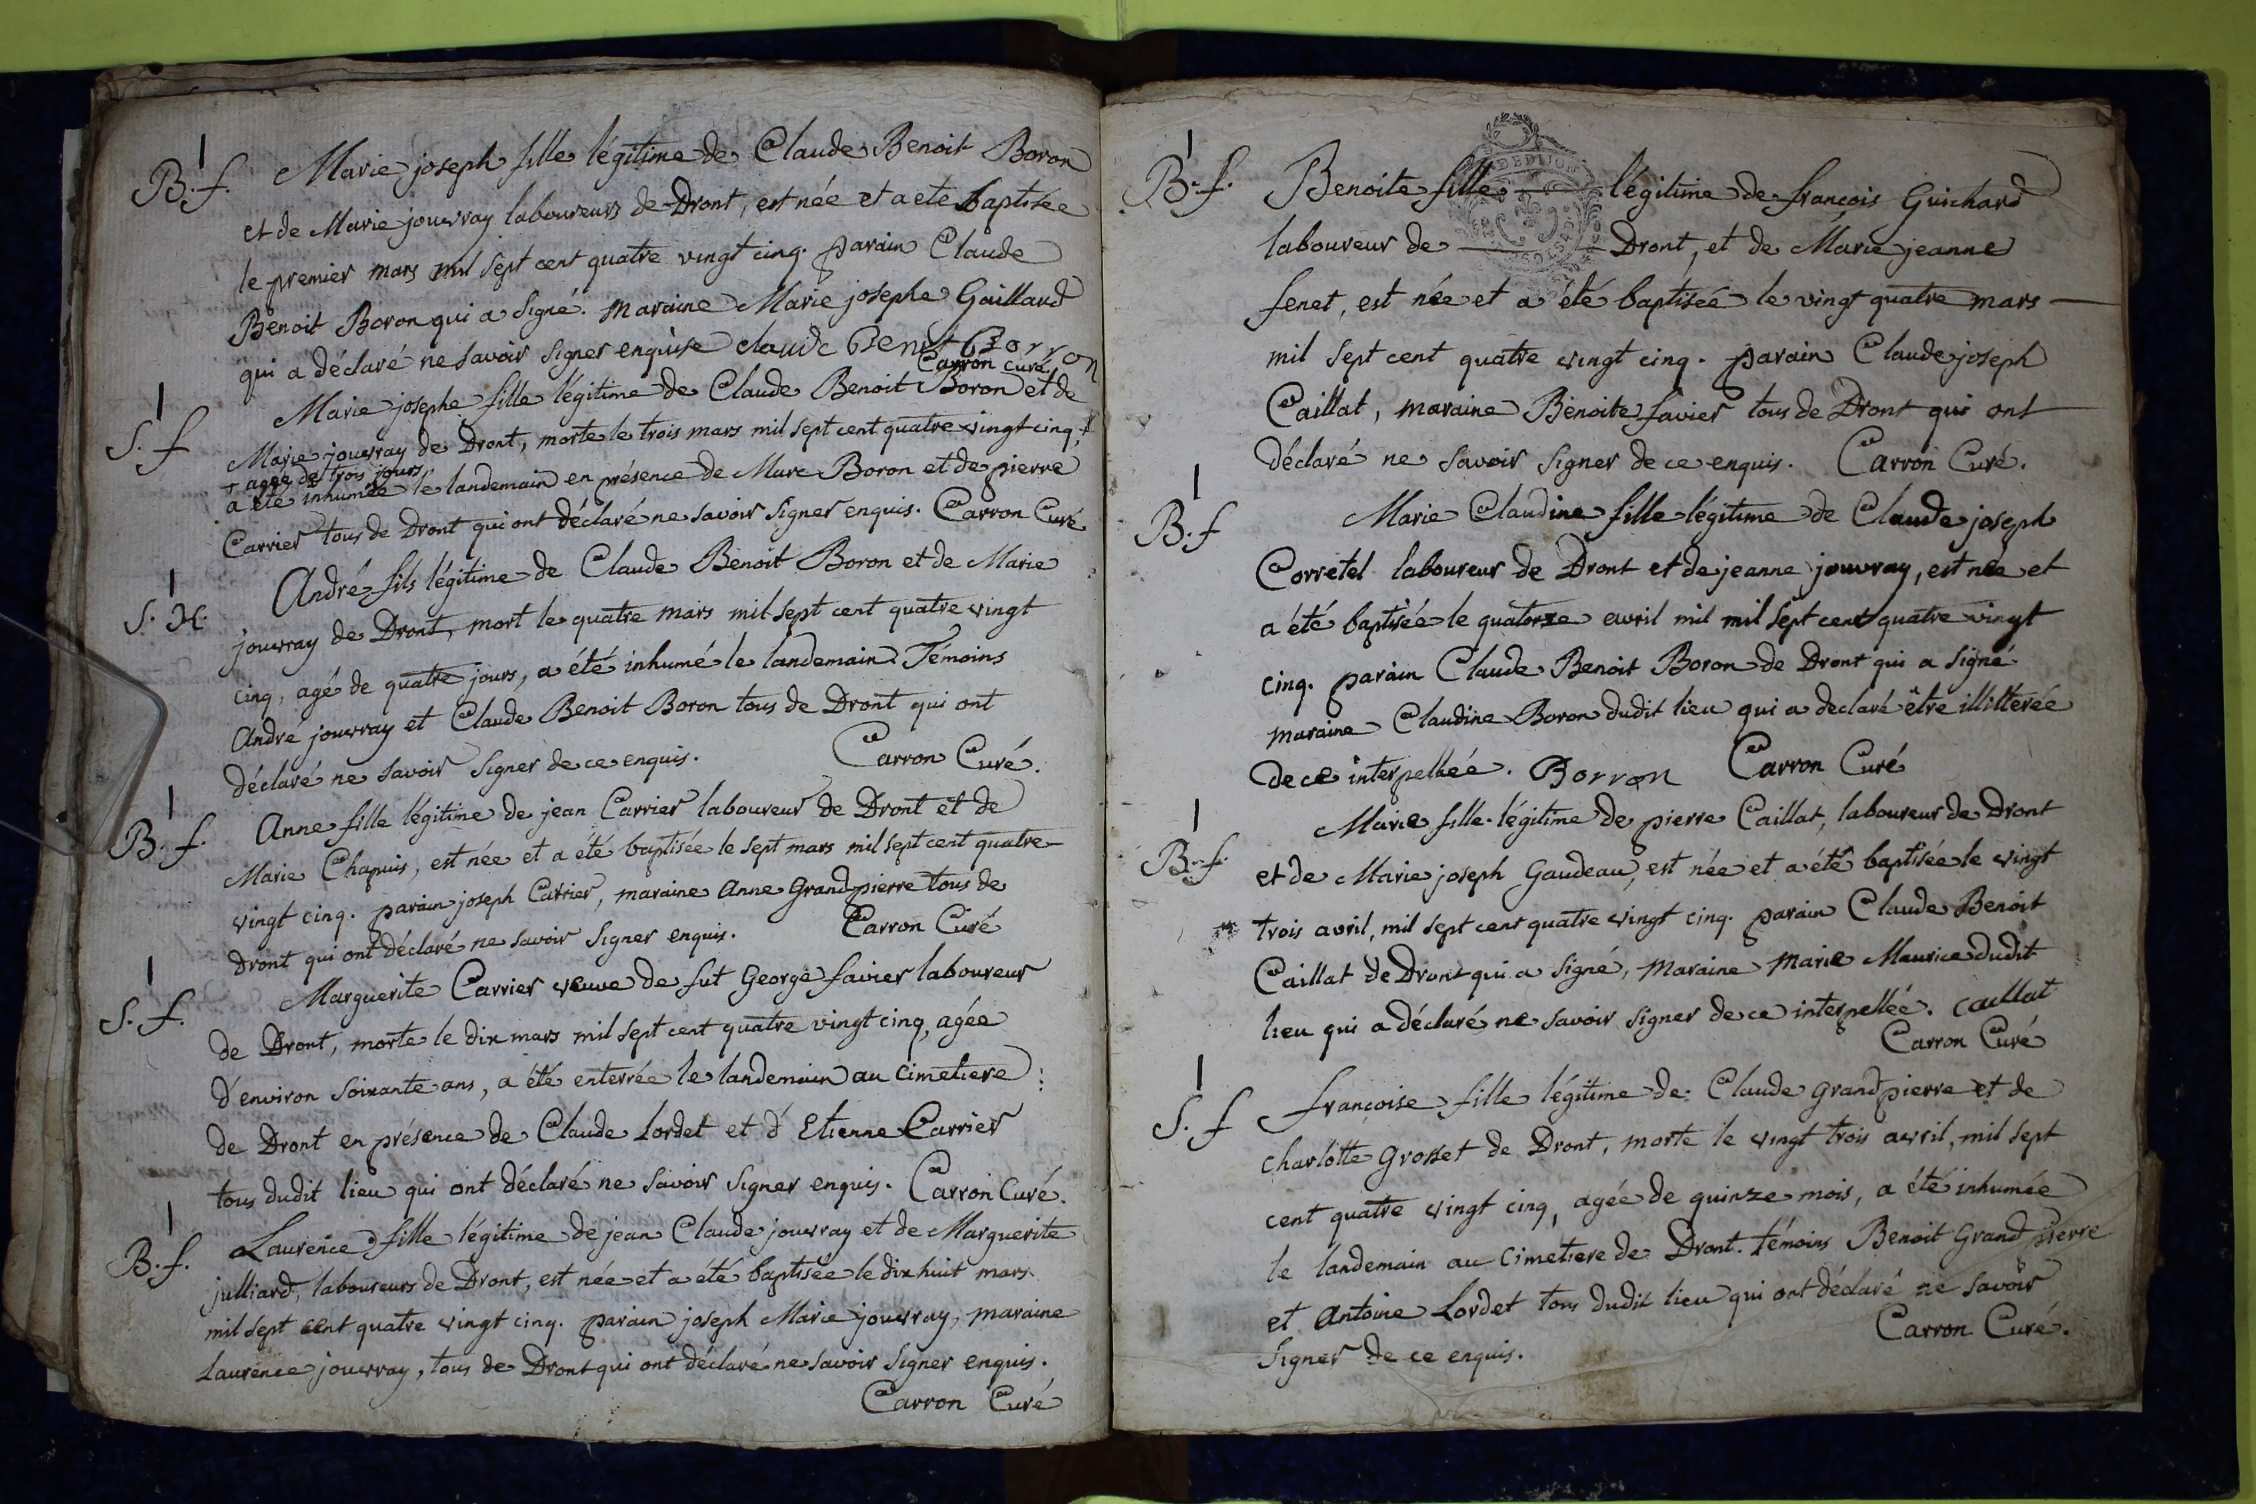 B. f.
Marie joseph fille légitime de Claude Benoit Boron
et de Marie jouvray laboureurs de Dront, est née et a eté baptisée
le premier mars mil sept cent quatre vingt cinq. parain Claude
Benoit Boron qui a signé. maraine Marie josephe Gaillard
qui a déclaré ne savoir signer enquise claude Benoit Borron
Carron Curé
S. f
Marie josephe fille légitime de Claude Benoit Boron et de
Marie jouvray de Dront, morte le trois mars mil sept cent quatre vingt cinq, +
+ agée de trois jours
a été inhumée le landemain en présence de Marc Boron et de pierre
Carrier tous de Dront qui ont déclaré ne savoir signer enquis. Carron Curé
S. M.
André fils légitime de Claude Benoit Boron et de Marie
jouvray de Dront, mort le quatre mars mil sept cent quatre vingt
cinq, agé de quatre jours, a été inhumé le landemain. Témoins
Andre jouvray et Claude Benoit Boron tous de Dront qui ont
déclaré ne savoir signer de ce enquis. Carron Curé.
B. f.
Anne fille légitime de jean Carrier laboureur de Dront et de
Marie Chapuis, est née et a été baptisée le sept mars mil sept cent quatre
vingt cinq. parain joseph Carrier, maraine anne Grandpierre tous de
Dront qui ont déclaré ne savoir signer enquis. Carron Curé
S. f.
Marguerite Carrier veuve de fut George favier laboureur
de Dront, morte le dix mars mil sept cent quatre vingt cinq, agée
d'environ soixante ans, a été enterrée le landemain au cimetiere
de Dront en présence de Claude Lordet et d'Etienne Carrier
tous dudit lieu qui ont déclaré ne savoir signer enquis. Carron Curé.
B. f.
Laurence fille légitime de jean Claude jouvray et de Marguerite
julliard, laboureurs de Dront, est née et a été baptisée le dix huit mars
mil sept cent quatre vingt cinq. parain joseph Marie jouvray, maraine
Laurence jouvray, tous de Dront qui ont déclaré ne savoir signer enquis.
Carron Curé
B. f.
Benoite fille légitime de françois Guichard
laboureur de Dront, et de Marie jeanne
fenet, est née et a été baptisée le vingt quatre mars
mil sept cent quatre vingt cinq. parain Claude joseph
Caillat, maraine Benoite favier tous de Dront qui ont
déclaré ne savoir signer de ce enquis. Carron Curé.
B. f
Marie Claudine fille légitime de Claude joseph
Corretel laboureur de Dront et de jeanne jouvray, est née et
a été baptisée le quatorze avril mil mil sept cent quatre vingt
cinq. parain Claude Benoit Boron de Dront qui a signé
maraine Claudine Boron dudit lieu qui a declaré être illitterée
de ce interpellée. Borron Carron Curé
B. f.
Marie fille légitime de pierre Caillat, laboureur de Dront
et de Marie joseph Gaudeau, est née et a été baptisée le vingt
trois avril, mil sept cent quatre vingt cinq. parain Claude Benoit
Caillat de Dront qui a signé, maraine Marie Maurice dudit
lieu qui a déclaré ne savoir signer de ce interpellée. caillat
Carron Curé
S. f
françoise fille légitime de Claude grandpierre et de
charlotte grosset de Dront, morte le vingt trois avril, mil sept
cent quatre vingt cinq, agée de quinze mois, a été inhumée
le landemain au cimetiere de Dront. témoins Benoit Grandpierre
et Antoine Lordet tous dudit lieu qui ont déclaré ne savoir
signer de ce enquis. Carron Curé.